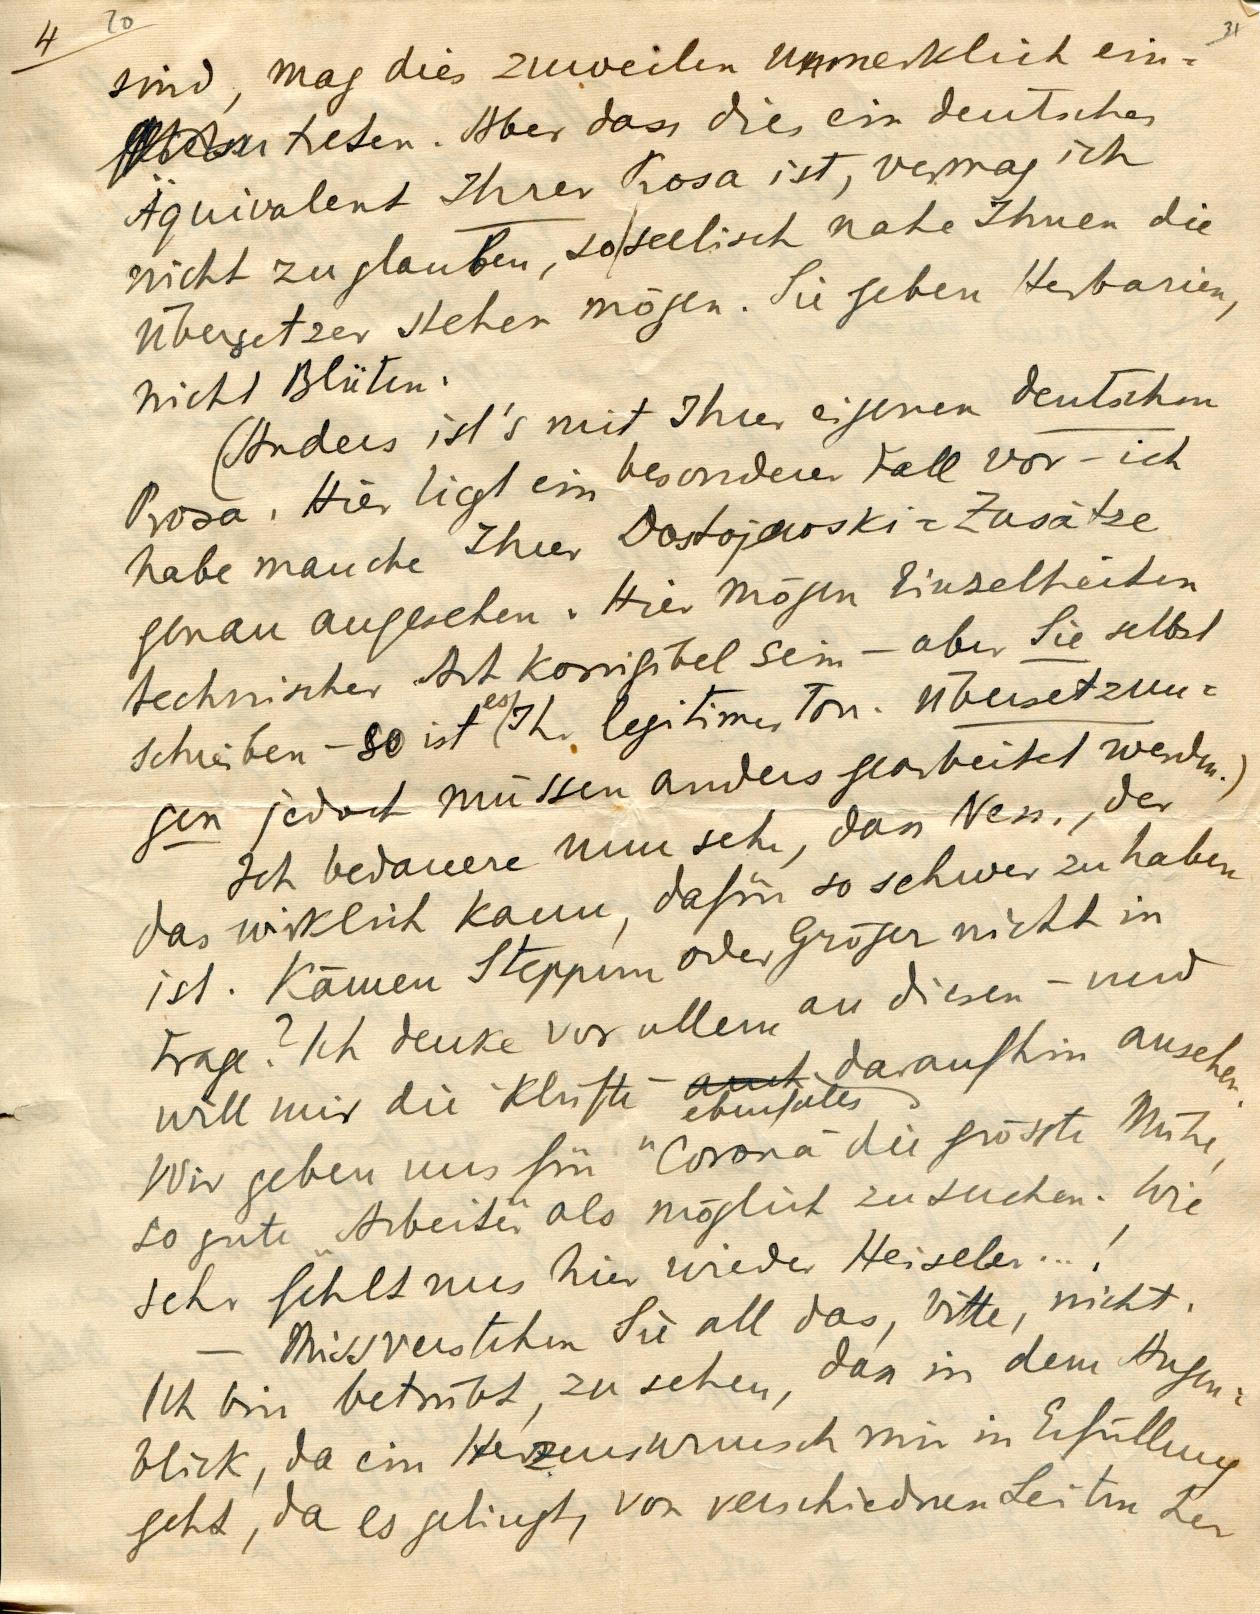 4 20 31
sind, mag dies zuweilen unmerklich ein=
treten. Aber dass dies ein deutsches
Äquivalent Ihrer Prosa ist, vermag ich
nicht zu glauben, so seelisch nahe Ihnen die
Übersetzer stehen mögen. Sie geben Herbarien,
nicht Blüten.
(Anders ist's mit Ihrer eigenen deutschen
Prosa. Hier liegt ein besonderer Fall vor – ich
habe manche Ihrer Dostojewski=Zusätze
genau angesehen. Hier mögen Einzelheiten
technischer Art korrigibel sein – aber Sie selbst
schreiben – so ist es Ihr legitimer Ton. Übersetzun=
gen jedoch müssen anders gearbeitet werden.)
Ich bedauere nun sehr, dass Ness., der
das wirklich kann, dafür so schwer zu haben
ist. Kämen Steppun oder Gröger nicht in
Frage? Ich denke vor allem an diesen – und
will mir die Klüfte – auch daraufhin ansehen.
ebenfalls
Wir geben uns für "Corona" die grösste Mühe,
so gute "Arbeiter" als möglich zu suchen. Wie
sehr fehlt uns hier wieder Heiseler...!
— Missverstehen Sie all das, bitte, nicht.
Ich bin betrübt, zu sehen, dass in dem Augen=
blick, da ein Herzenswunsch mir in Erfüllung
geht, da es gelingt, von verschiednen Seiten her